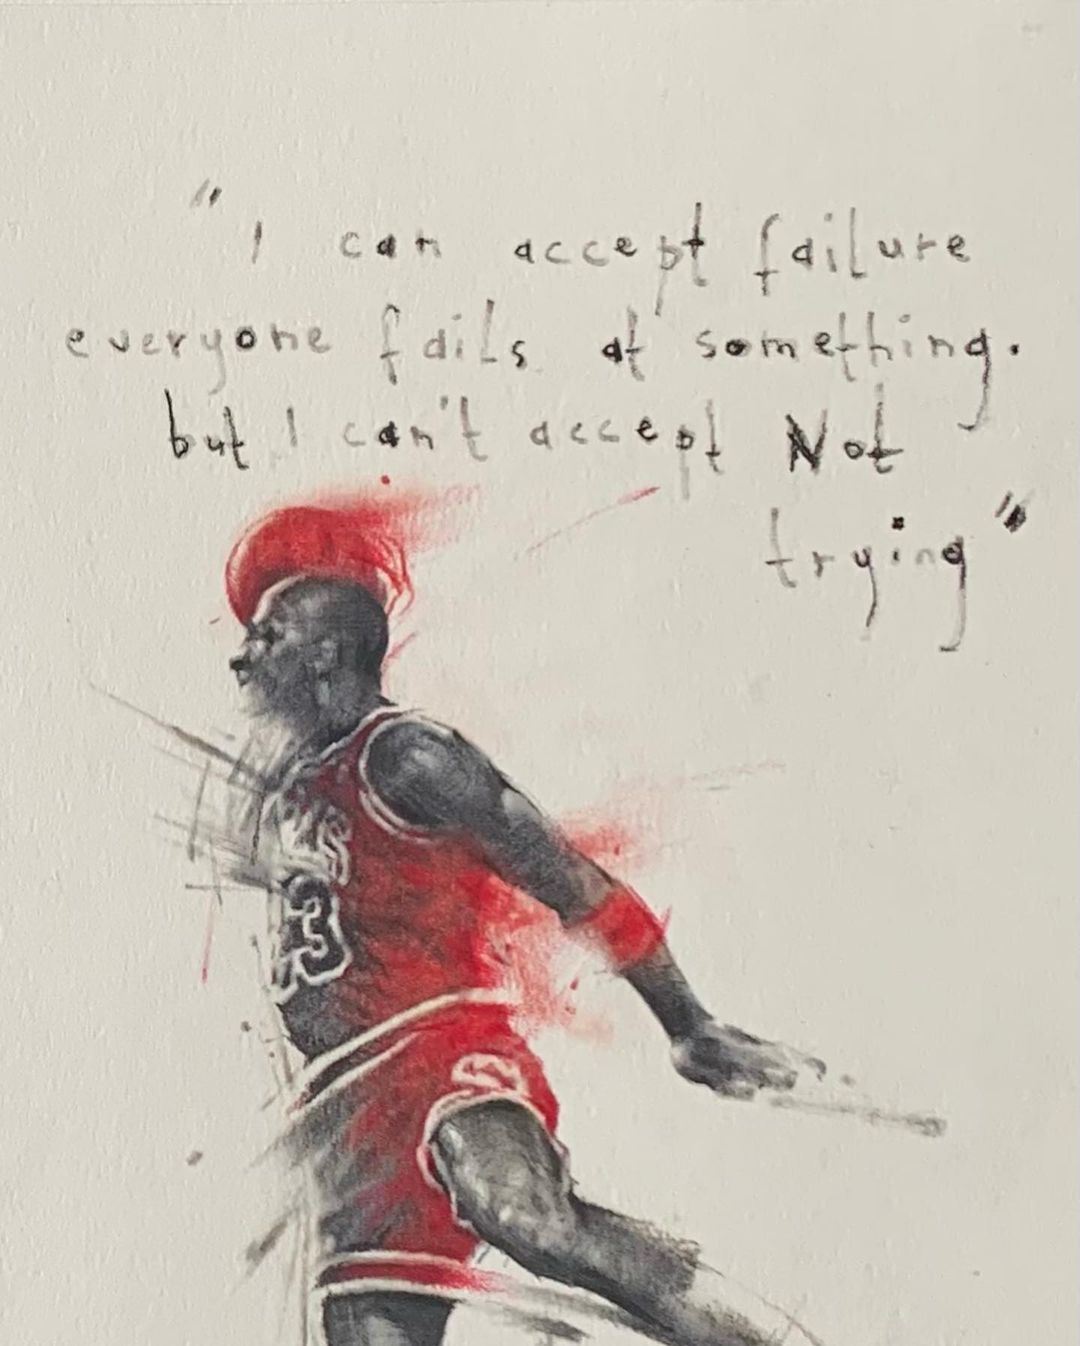 "I can accept failure
everyone fails at something.
but I can't accept Not
trying"
LLS
23